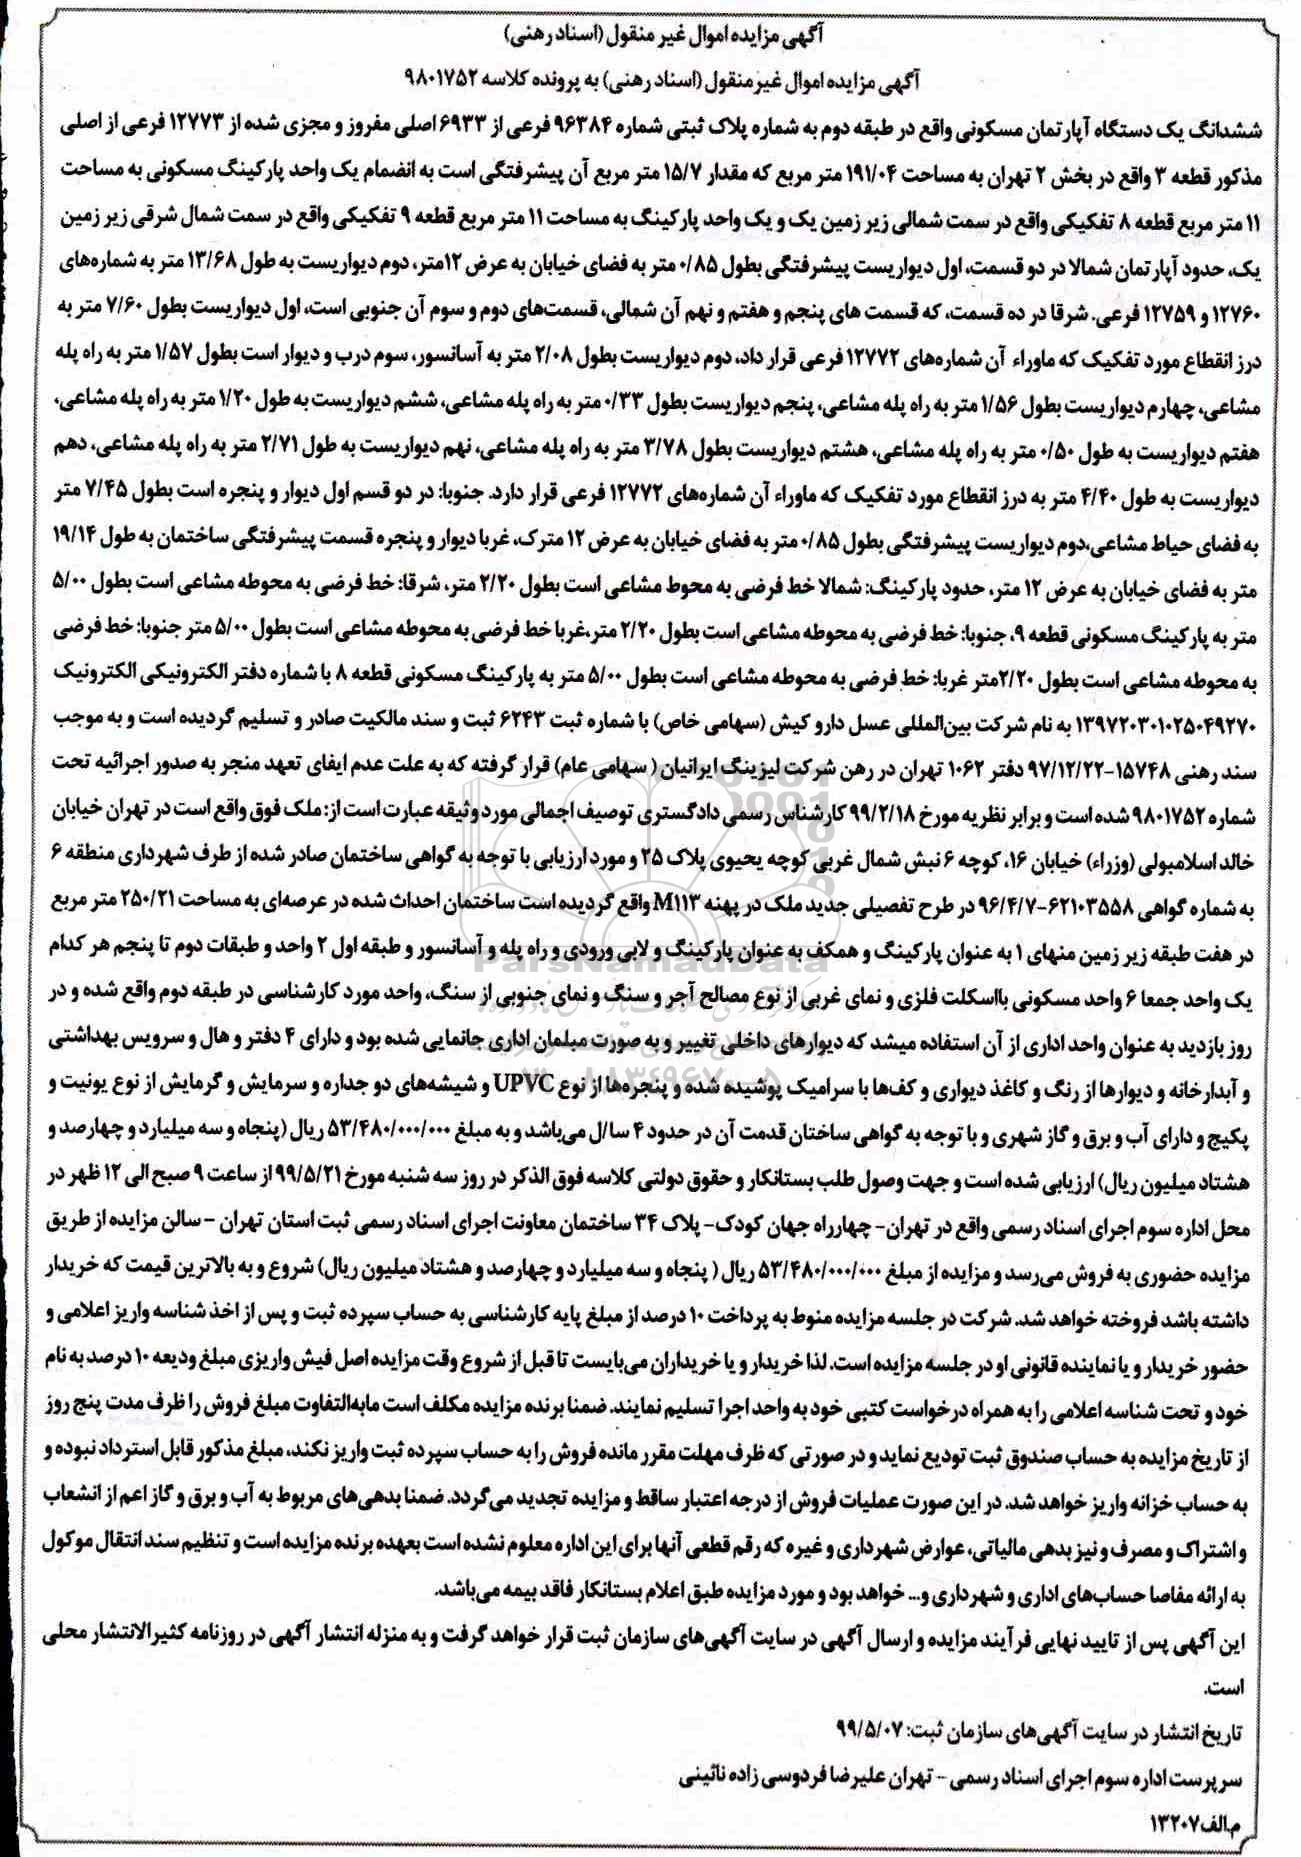 آگهی مزایده اموال غیر منقول (اسناد رهنی)
آگهی مزایده اموال غیرمنقول (اسناد رهنی) به پرونده کلاسه ۹۸۰۱۷۵۲
ششدانگ یک دستگاه آپارتمان مسکونی واقع در طبقه دوم به شماره پلاک ثبتی شماره ۹۶۳۸۴ فرعی از ۶۹۳۳ اصلی مفروز و مجزی شده از ۱۲۷۷۳ فرعی از اصلی
مذکور قطعه ۳ واقع در بخش ۲ تهران به مساحت ۱۹۱/۰۴ متر مربع که مقدار ۱۵/۷ متر مربع آن پیشرفتگی است به انضمام یک واحد پارکینگ مسکونی به مساحت
۱۱ متر مربع قطعه ۸ تفکیکی واقع در سمت شمالی زیر زمین یک و یک واحد پارکینگ به مساحت ۱۱ متر مربع قطعه ۹ تفکیکی واقع در سمت شمال شرقی زیر زمین
یک، حدود آپارتمان شمالا در دو قسمت، اول دیواریست پیشرفتگی بطول ۰/۸۵ متر به فضای خیابان به عرض ۱۲متر، دوم دیواریست به طول ۱۳/۶۸ متر به شماره‌های
۱۲۷۶۰ و ۱۲۷۵۹ فرعی. شرقا در ده قسمت، که قسمت های پنجم و هفتم و نهم آن شمالی، قسمت‌های دوم و سوم آن جنوبی است، اول دیواریست بطول ۷/۶۰ متر به
درز انقطاع مورد تفکیک که ماوراء آن شماره‌های ۱۲۷۷۲ فرعی قرار داد، دوم دیواریست بطول ۲/۰۸ متر به آسانسور، سوم درب و دیوار است بطول ۱/۵۷ متر به راه پله
مشاعی، چهارم دیواریست بطول ۱/۵۶ متر به راه پله مشاعی، پنجم دیواریست بطول ۰/۳۳ متر به راه پله مشاعی، ششم دیواریست به طول ۱/۲۰ متر به راه پله مشاعی،
هفتم دیواریست به طول ۰/۵۰ متر به راه پله مشاعی، هشتم دیواریست بطول ۳/۷۸ متر به راه پله مشاعی، نهم دیواریست به طول ۲/۷۱ متر به راه پله مشاعی، دهم
دیواریست به طول ۴/۴۰ متر به درز انقطاع مورد تفکیک که ماوراء آن شماره‌های ۱۲۷۷۲ فرعی قرار دارد. جنوبا: در دو قسم اول دیوار و پنجره است بطول ۷/۴۵ متر
به فضای حیاط مشاعی،دوم دیواریست پیشرفتگی بطول ۰/۸۵ متر به فضای خیابان به عرض ۱۲ مترک، غربا دیوار و پنجره قسمت پیشرفتگی ساختمان به طول ۱۹/۱۴
متر به فضای خیابان به عرض ۱۲ متر، حدود پارکینگ: شمالا خط فرضی به محوط مشاعی است بطول ۲/۲۰ متر، شرقا: خط فرضی به محوطه مشاعی است بطول ۵/۰۰
متر به پارکینگ مسکونی قطعه ۹، جنوبا: خط فرضی به محوطه مشاعی است بطول ۲/۲۰ متر،غربا خط فرضی به محوطه مشاعی است بطول ۵/۰۰ متر جنوبا: خط فرضی
به محوطه مشاعی است بطول ۲/۲۰متر غربا: خط فرضی به محوطه مشاعی است بطول ۵/۰۰ متر به پارکینگ مسکونی قطعه ۸ با شماره دفتر الکترونیکی الکترونیک
۱۳۹۷۲۰۳۰۱۰۲۵۰۴۹۲۷۰ به نام شرکت بین‌المللی عسل دارو کیش (سهامی خاص) با شماره ثبت ۶۲۴۳ ثبت و سند مالکیت صادر و تسلیم گردیده است و به موجب
سند رهنی ۱۵۷۴۸-۹۷/۱۲/۲۲ دفتر ۱۰۶۲ تهران در رهن شرکت لیزینگ ایرانیان ( سهامی عام) قرار گرفته که به علت عدم ایفای تعهد منجر به صدور اجرائیه تحت
شماره ۹۸۰۱۷۵۲ شده است و برابر نظریه مورخ ۹۹/۲/۱۸ کارشناس رسمی دادگستری توصیف اجمالی مورد وثیقه عبارت است از: ملک فوق واقع است در تهران خیابان
خالد اسلامبولی (وزراء) خیابان ۱۶، کوچه ۶ نبش شمال غربی کوچه یحیوی پلاک ۲۵ و مورد ارزیابی با توجه به گواهی ساختمان صادر شده از طرف شهرداری منطقه ۶
به شماره گواهی ۶۲۱۰۳۵۵۸-۹۶/۴/۷ در طرح تفصیلی جدید ملک در پهنه M۱۱۳ واقع گردیده است ساختمان احداث شده در عرصه‌ای به مساحت ۲۵۰/۲۱ متر مربع
در هفت طبقه زیر زمین منهای ۱ به عنوان پارکینگ و همکف به عنوان پارکینگ و لابی ورودی و راه پله و آسانسور و طبقه اول ۲ واحد و طبقات دوم تا پنجم هر کدام
یک واحد جمعا ۶ واحد مسکونی بااسکلت فلزی و نمای غربی از نوع مصالح آجر و سنگ و نمای جنوبی از سنگ، واحد مورد کارشناسی در طبقه دوم واقع شده و در
روز بازدید به عنوان واحد اداری از آن استفاده میشد که دیوارهای داخلی تغییر و به صورت مبلمان اداری جانمایی شده بود و دارای ۴ دفتر و هال و سرویس بهداشتی
و آبدارخانه و دیوارها از رنگ و کاغذ دیواری و کف‌ها با سرامیک پوشیده شده و پنجره‌ها از نوع UPVC و شیشه‌های دو جداره و سرمایش و گرمایش از نوع یونیت و
پکیج و دارای آب و برق و گاز شهری و با توجه به گواهی ساختان قدمت آن در حدود ۴ سا/ل می‌باشد و به مبلغ ۵۳/۴۸۰/۰۰۰/۰۰۰ ریال (پنجاه و سه میلیارد و چهارصد و
هشتاد میلیون ریال) ارزیابی شده است و جهت وصول طلب بستانکار و حقوق دولتی کلاسه فوق الذکر در روز سه شنبه مورخ ۹۹/۵/۲۱ از ساعت ۹ صبح الی ۱۲ ظهر در
محل اداره سوم اجرای اسناد رسمی واقع در تهران- چهارراه جهان کودک- پلاک ۳۴ ساختمان معاونت اجرای اسناد رسمی ثبت استان تهران – سالن مزایده از طریق
مزایده حضوری به فروش می‌رسد و مزایده از مبلغ ۵۳/۴۸۰/۰۰۰/۰۰۰ ریال ( پنجاه و سه میلیارد و چهارصد و هشتاد میلیون ریال) شروع و به بالاترین قیمت که خریدار
داشته باشد فروخته خواهد شد. شرکت در جلسه مزایده منوط به پرداخت ۱۰ درصد از مبلغ پایه کارشناسی به حساب سپرده ثبت و پس از اخذ شناسه واریز اعلامی و
حضور خریدار و یا نماینده قانونی او در جلسه مزایده است. لذا خریدار و یا خریداران می‌بایست تا قبل از شروع وقت مزایده اصل فیش واریزی مبلغ ودیعه ۱۰ درصد به نام
خود و تحت شناسه اعلامی را به همراه درخواست کتبی خود به واحد اجرا تسلیم نمایند. ضمنا برنده مزایده مکلف است مابه‌التفاوت مبلغ فروش را ظرف مدت پنج روز
از تاریخ مزایده به حساب صندوق ثبت تودیع نماید و در صورتی که ظرف مهلت مقرر مانده فروش را به حساب سپرده ثبت واریز نکند، مبلغ مذکور قابل استرداد نبوده و
به حساب خزانه واریز خواهد شد. در این صورت عملیات فروش از درجه اعتبار ساقط و مزایده تجدید می‌گردد. ضمنا بدهی‌های مربوط به آب و برق و گاز اعم از انشعاب
و اشتراک و مصرف و نیز بدهی مالیاتی، عوارض شهرداری و غیره که رقم قطعی آنها برای این اداره معلوم نشده است بعهده برنده مزایده است و تنظیم سند انتقال موکول
به ارائه مفاصا حساب‌های اداری و شهرداری و... خواهد بود و مورد مزایده طبق اعلام بستانکار فاقد بیمه می‌باشد.
این آگهی پس از تایید نهایی فرآیند مزایده و ارسال آگهی در سایت آگهی‌های سازمان ثبت قرار خواهد گرفت و به منزله انتشار آگهی در روزنامه کثیرالانتشار محلی
است.
تاریخ انتشار در سایت آگهی‌های سازمان ثبت: ۹۹/۵/۰۷
سرپرست اداره سوم اجرای اسناد رسمی – تهران علیرضا فردوسی زاده نائینی
م.الف۱۳۲۰۷
ParsNamadData